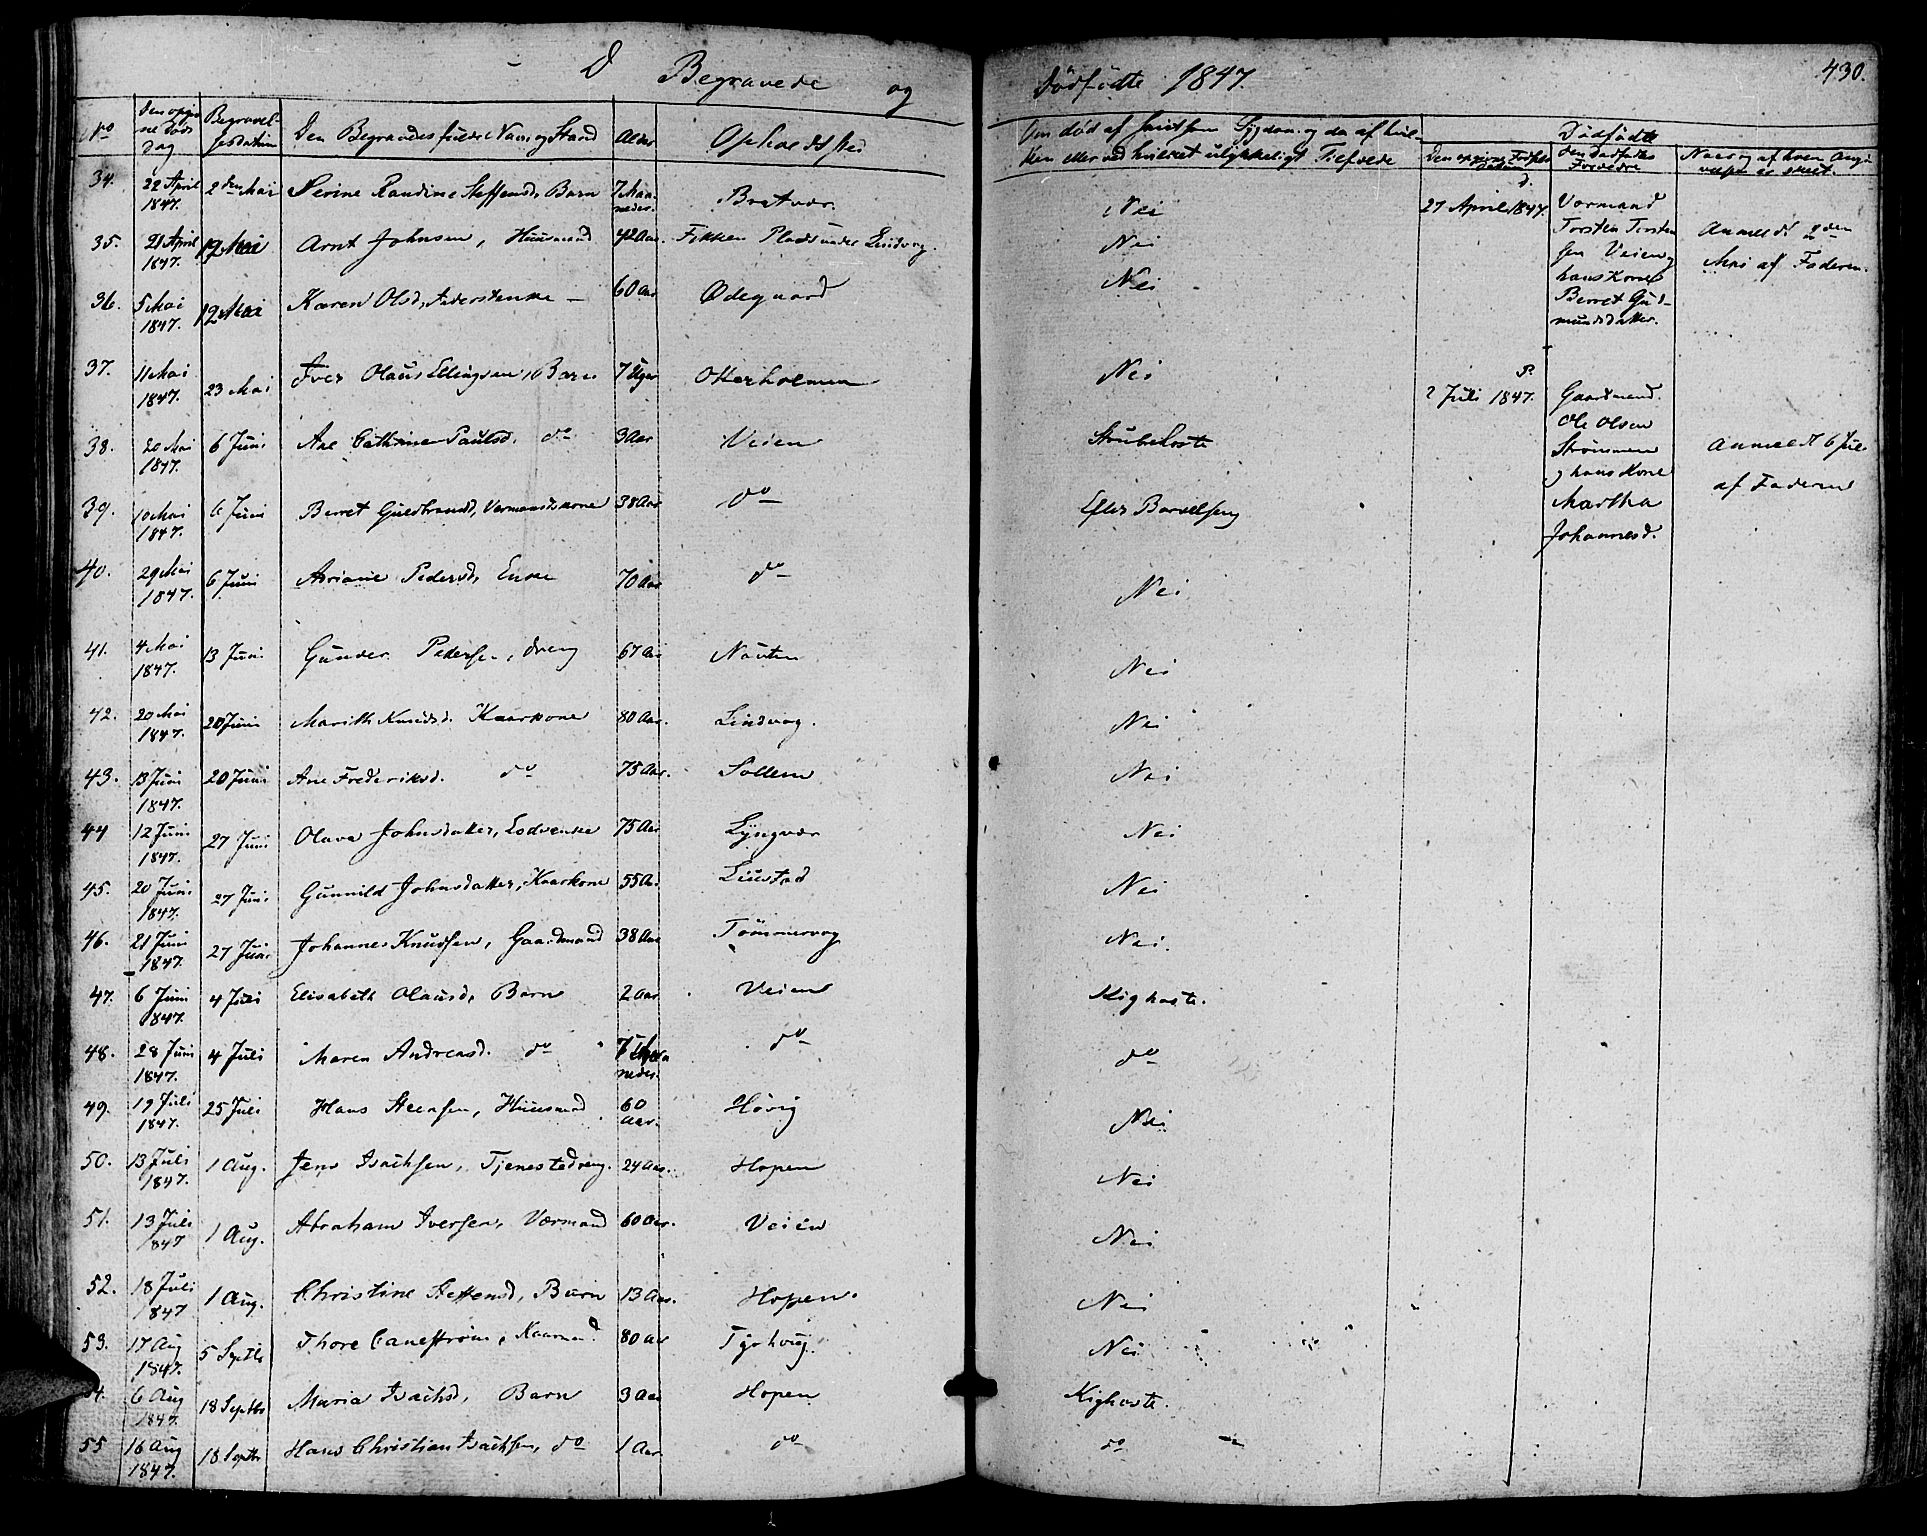 D Begravede og Dødfødte 1847. 430.
No Begravel- Den Begravedes fulde Navn og Stand Alder Opholdsted
Dødfødte
34. 22 April 1847. 2den Mai Serine Randine Steffensd, Barn 7 Maaneder. Bratvær. Nei
35. 21 April 1847. 12 Mai Arnt Johnsen, Huusmand 42 Aar. Fikken Plads under Lindvog. Nei
36. 5 Mai 1847. 12 Mai Karen Olsd, Inderstenke — 60 Aar Ødegaard Nei
37. 11 Mai 1847. 23 Mai Iver Olaus Ellingsen, Barn 7 Uger Otterholmen Nei
38. 20 Mai 1847. 6 Juni Ane Cathrine Paulsd. do 3 Aar Veien Strubehoste
39. 10 Mai 1847. 6 Juni Berret Guldbrandsd, Vormandskone 38 Aar do Efter Barselseng
40. 29 Mai 1847. 6 Juni Ariane Pedersd, Enke 70 Aar do Nei
41. 4 Mai 1847. 13 Juni Gunder Pedersen, dreng 67 Aar Nausten Nei
42. 20 Mai 1847. 20 Juni Marith Knudsd. Kaarkone 80 Aar. Lindvog. Nei
43. 13 Juni 1847. 20 Juni Ane Frederiksd. do 75 Aar. Sollem Nei
44 12 Juni 1847. 27 Juni Olava Johnsdatter, Lodsenke 75 Aar Lyngvær Nei
45. 20 Juni 1847. 27 Juni Gunnild Johnsdatter, Kaarkone 55 Aar Leustad Nei
46. 21 Juni 1847. 27 Juni Johannes Knudsen, Gaardmand 38 Aar Tømmervog Nei.
47. 6 Juni 1847. 4 Juli Elisabeth Olausd, Barn 2 Aar Veien Kighoste.
48. 28 Juni 1847. 4 Juli Maren Andreasd. do 7 Maaneder. do do
49. 19 Juli 1847. 25 Juli Hans Steensen, Huusmand 60 Aar. Høvig Nei
50. 13 Juli 1847. 1 Aug. Jens Isachsen, Tjenestedreng. 24 Aar. Hopen Nei
51. 13 Juli 1847 1 Aug. Abraham Iversen, Vormand 60 Aar. Veien Nei
52. 18 Juli 1847 1 Aug. Christine Steffensd, Barn 13 Aar. Hopen. Nei
53. 17 Aug 1847. 5 Septbr Thore Canestrøm, Kaarmand. 80 Aar Tyrhoug. Nei
54. 6 Aug 1847. 18 Septbr Maria Isachsd, Barn 3 Aar Hopen Kighoste.
55 16 Aug 1847. 18 Septbr Hans Christian Isachsen, do 1 Aar do do
D.
27 April 1847. Vormand
Torsten Torsten
sen Veien og
hans Kone
Berret Gud-
mundsdatter.
Anmeldt den
Mai af Faderen.
P.
2 Juli 1847. Gaardmand.
Ole Olsen
Strømmen
og hans Kone
Martha
Johannesd.
Anmeldt 6 Juli
af Faderen